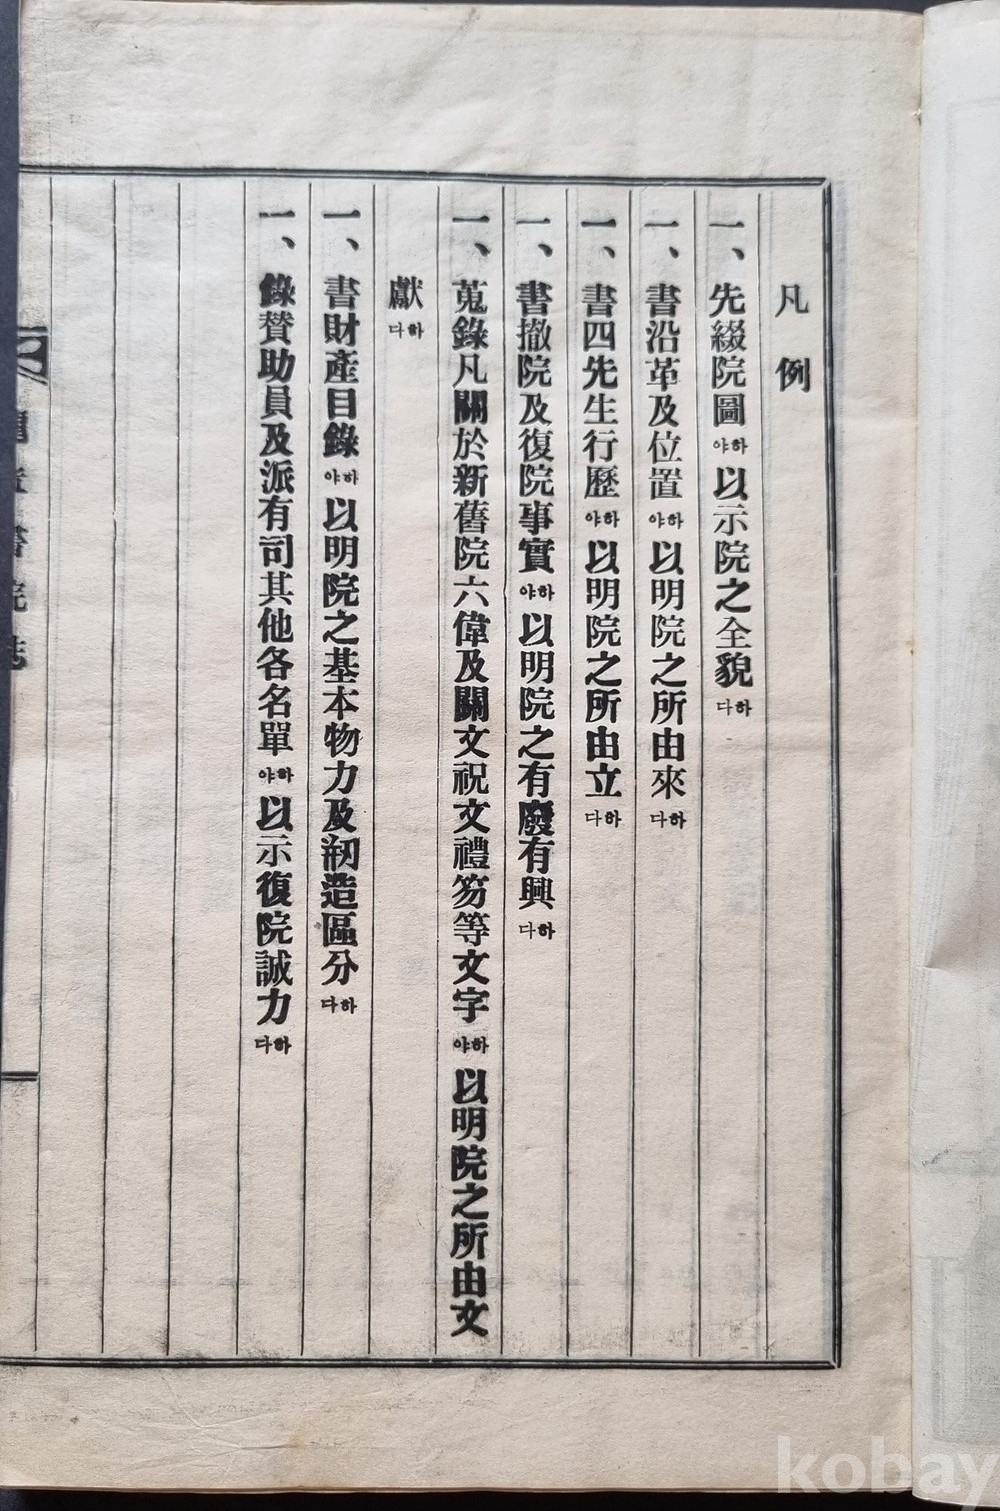 凡例
一、先綴院圖하야以示院之全貌하다
一、書沿革及位置하야以明院之所由來하다
一、書四先生行歷하야以明院之所由立하다
一、書撤院及復院事實하야以明院之有廢有興하다
一、蒐錄凡關於新舊院六偉及關文祝文禮笏等文字하야以明院之所由文
獻하다
一、書財產目錄하야以明院之基本物力及刱造區分하다
一、錄贊助員及派有司其他各名單하야以示復院誠力하다
書院誌
kobay